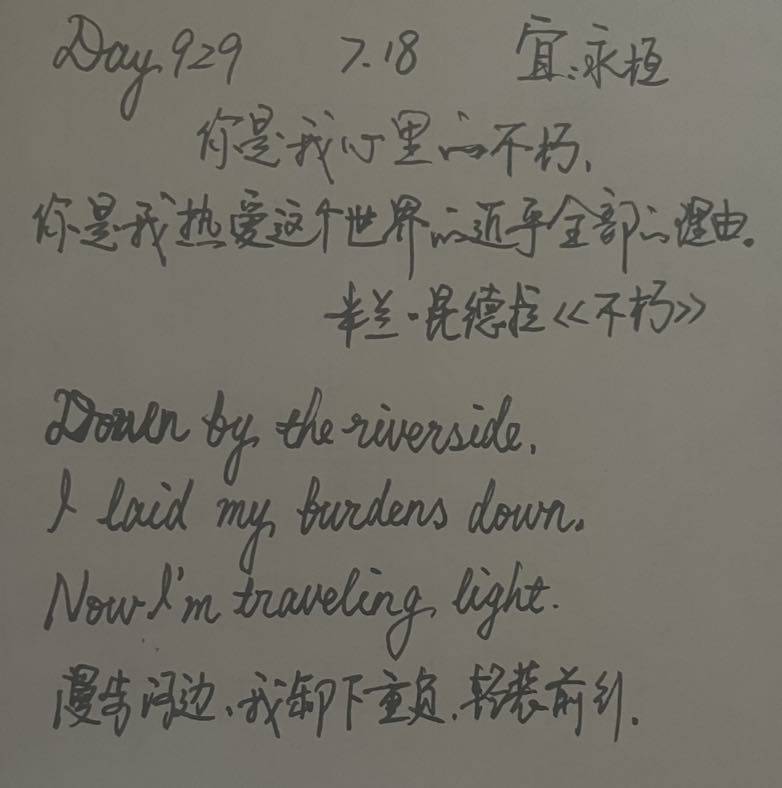 Day 929 7.18 宜:永恒
你是我心里的不朽、
你是我热爱这个世界的近乎全部的理由。
米兰·昆德拉《不朽》
Down by the riverside,
I laid my burdens down.
Now I'm traveling light.
漫步河边、我卸下重负.轻装前行.